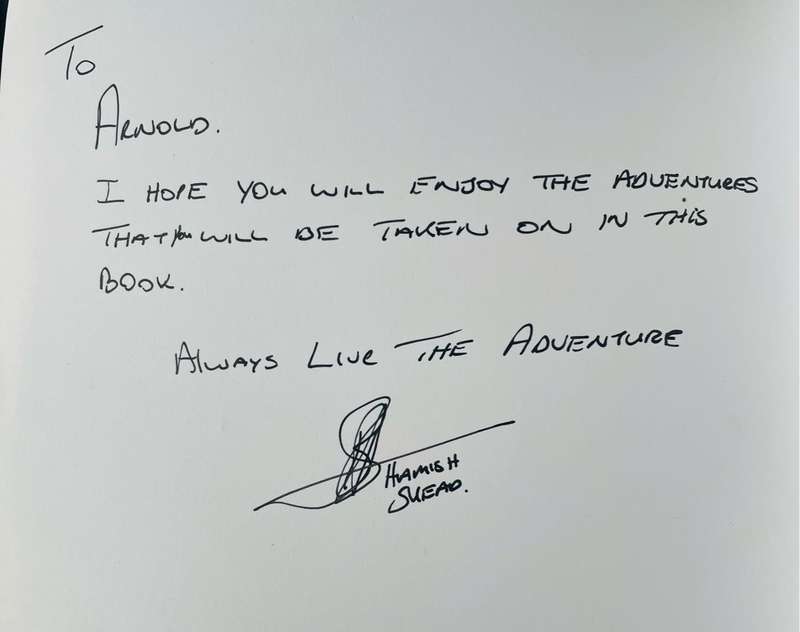 To
ARNOLD.
I HOPE YOU WILL ENJOY THE ADVENTURES
THAT you WILL BE TAKEN ON IN THIS
BOOK.
ALWAYS LIVE THE ADVENTURE
HAMISH
SKEAD.